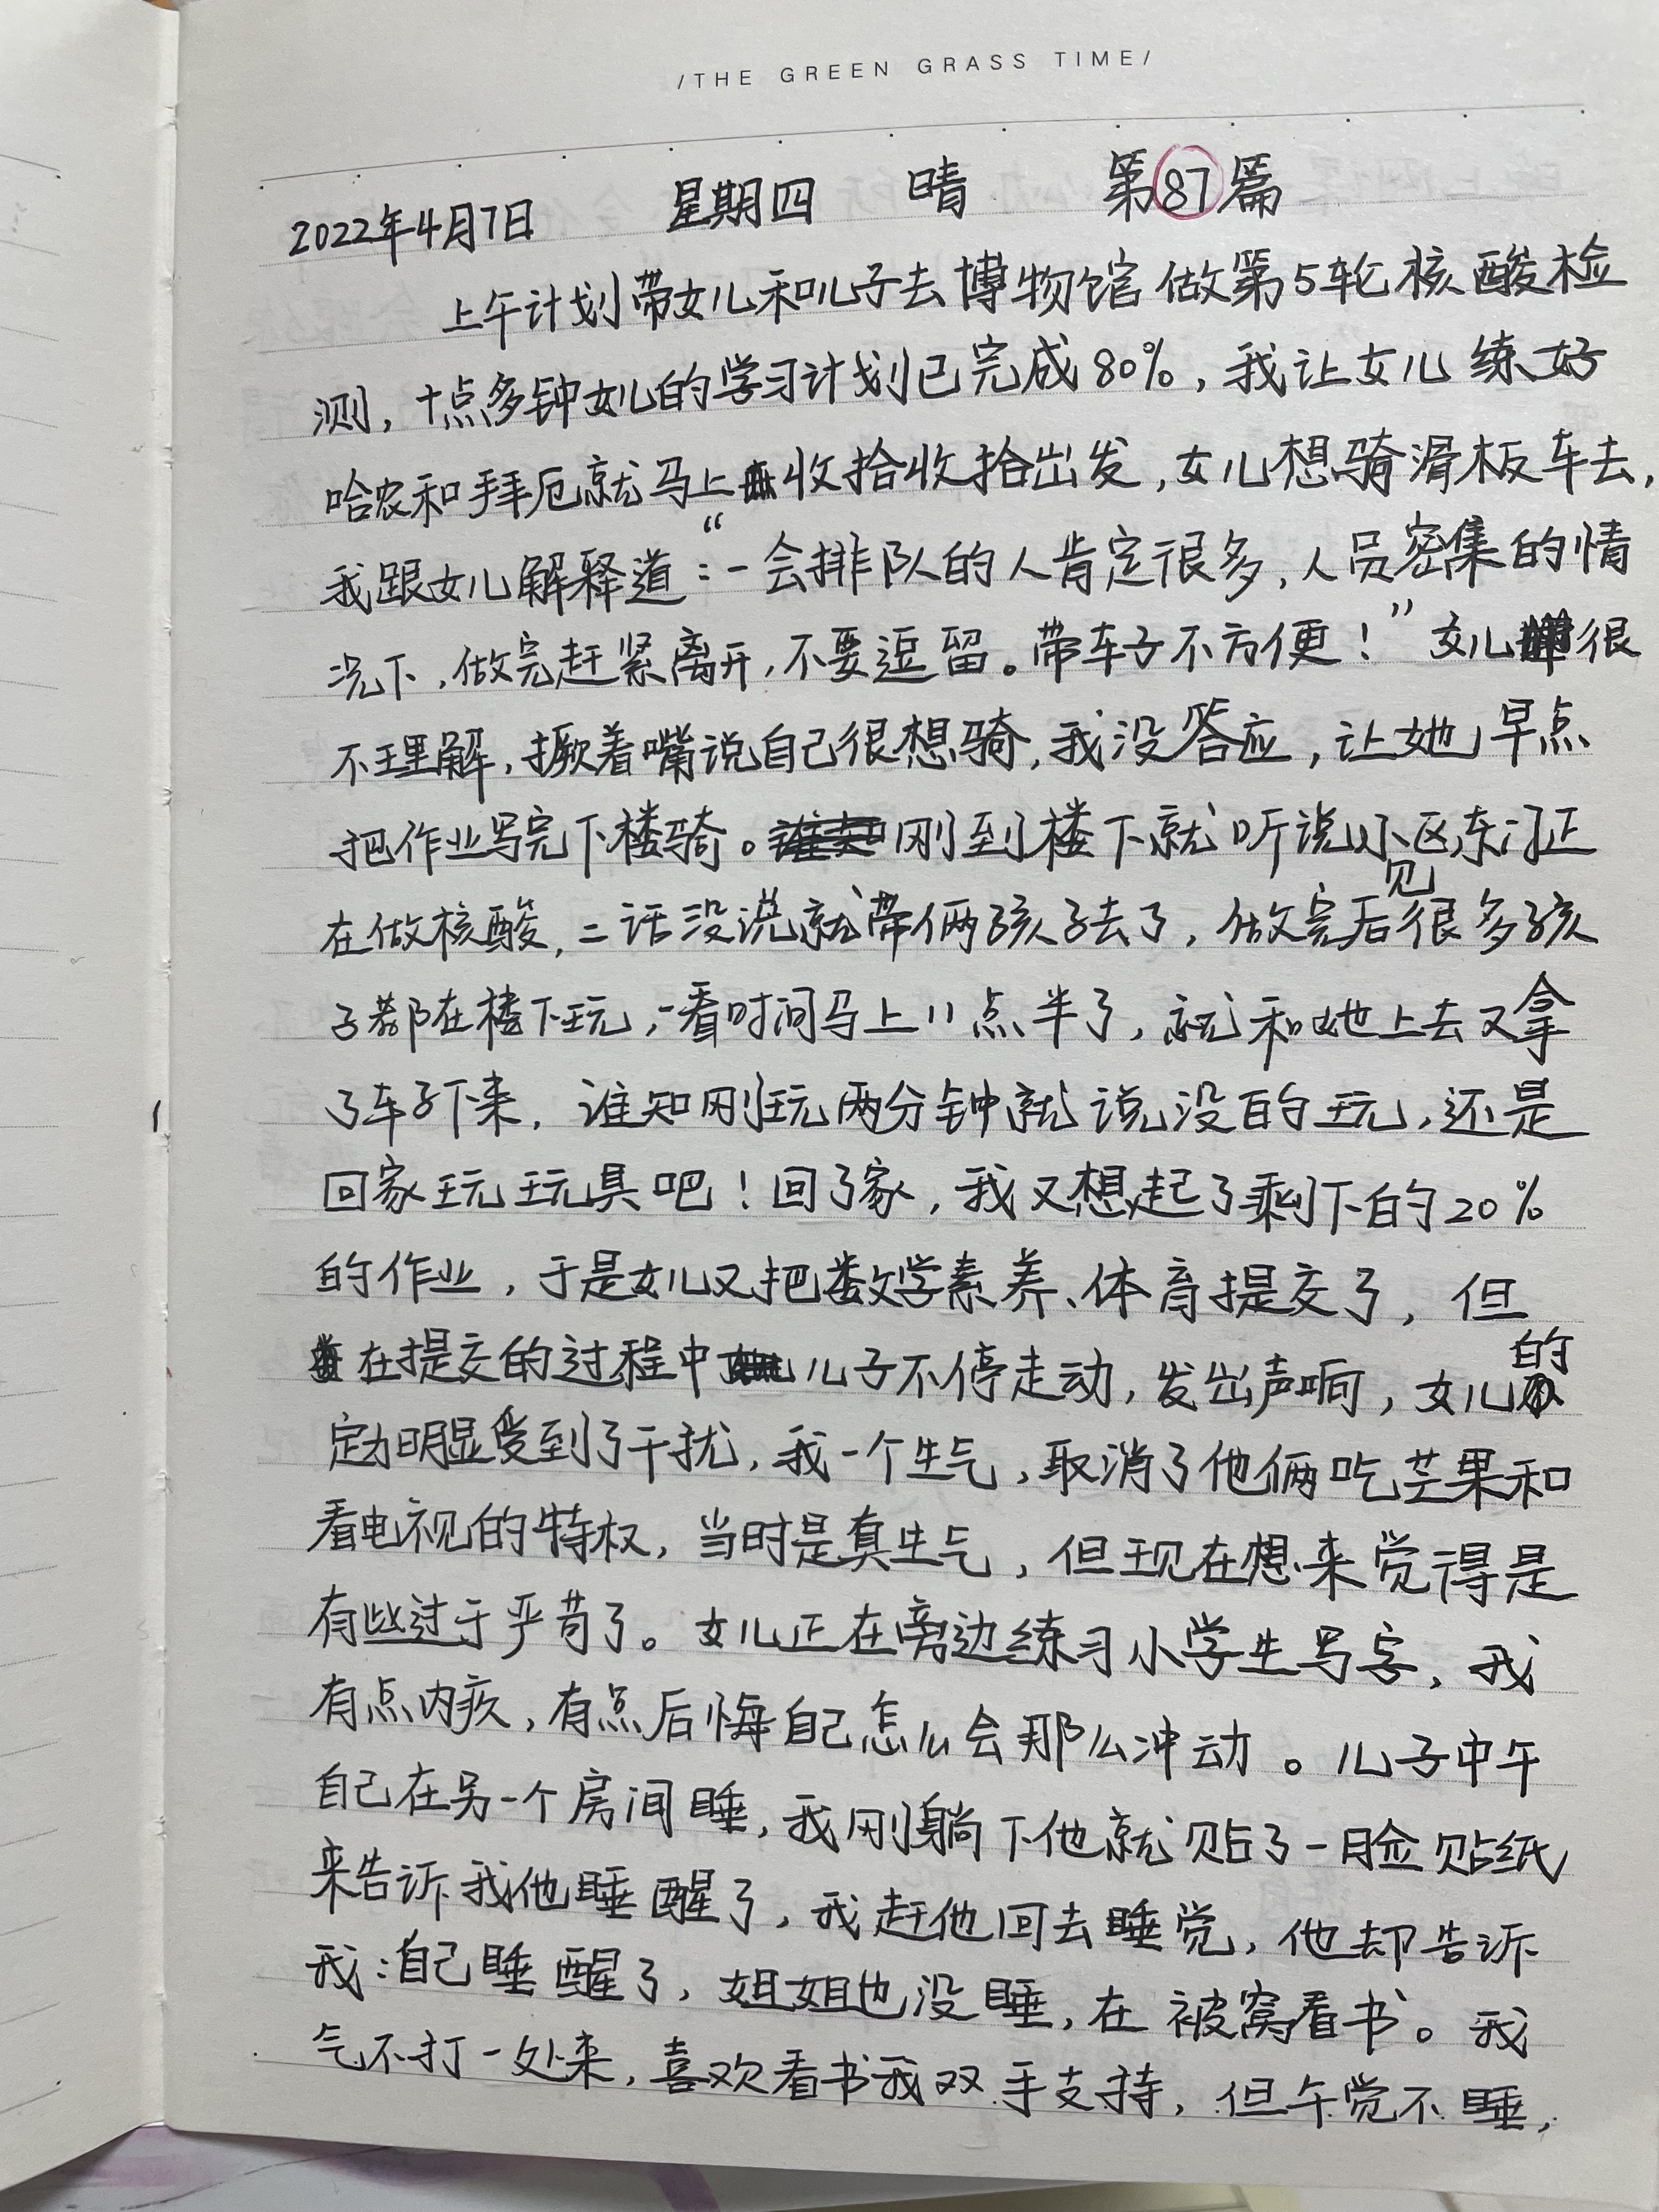 /THE GREEN GRASS TIME/
2022年4月7日 星期四 晴 第87篇
上午计划带女儿和儿子去博物馆做第5轮核酸检
测，十点多钟女儿的学习计划已完成80%，我让女儿练好
哈农和拜厄就马上收拾收拾出发，女儿想骑滑板车去，
我跟女儿解释道：“一会排队的人肯定很多，人员密集的情
况下，做完赶紧离开，不要逗留。带车子不方便！”女儿很
不理解，撅着嘴说自己很想骑，我没答应，让她早点
把作业写完下楼骑。刚到楼下就听说小区东门正
在做核酸，二话没说就带俩孩子去了，做完后见很多孩
子都在楼下玩，一看时间马上11点半了，就和她上去又拿
了车子下来，谁知刚玩两分钟就说没的玩，还是
回家玩玩具吧！回了家，我又想起了剩下的20%
的作业，于是女儿又把数学素养、体育提交了，但
在提交的过程中儿子不停走动，发出声响，女儿的
定力明显受到了干扰，我一个生气，取消了他俩吃芒果和
看电视的特权，当时是真生气，但现在想来觉得是
有些过于严苛了。女儿正在旁边练习小学生写字，我
有点内疚，有点后悔自己怎么会那么冲动。儿子中午
自己在另一个房间睡，我刚躺下他就贴了一脸贴纸
来告诉我他睡醒了，我赶他回去睡觉，他却告诉
我：自己睡醒了，姐姐也没睡，在被窝看书。我
气不打一处来，喜欢看书我双手支持，但午觉不睡，